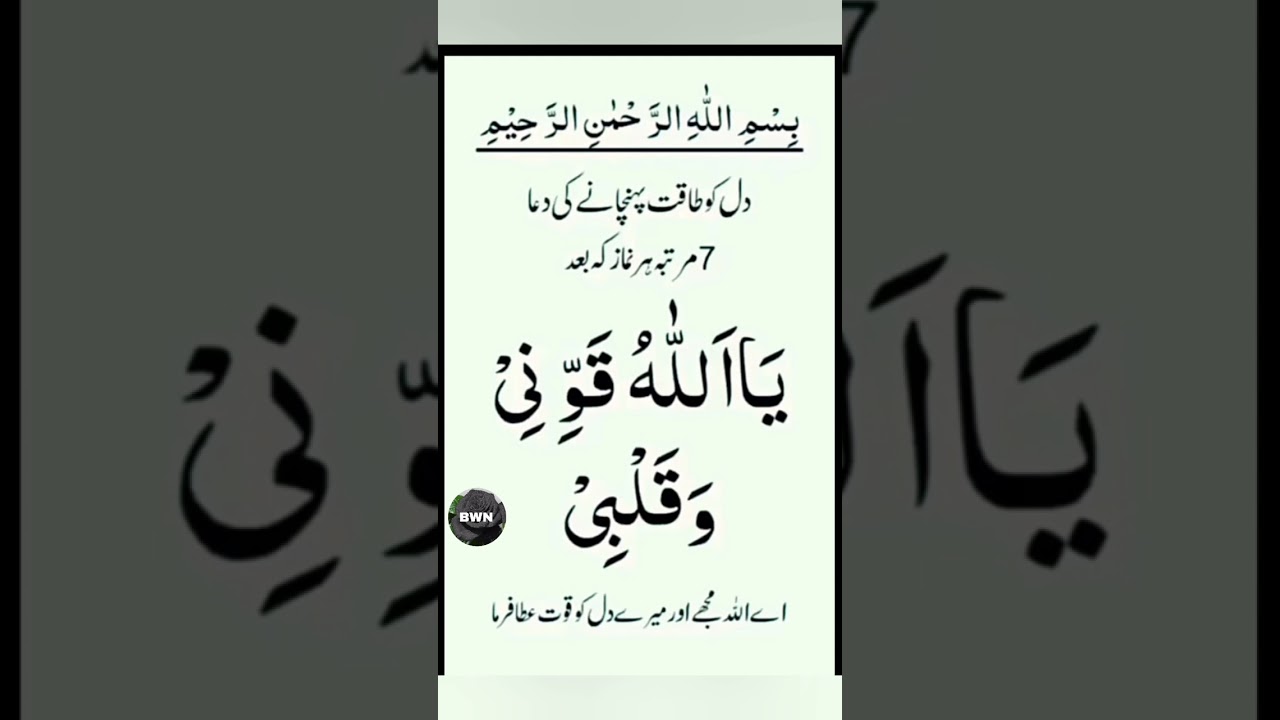 بِسْمِ اللّٰهِ الرَّحْمٰنِ الرَّحِيْمِ
دل کو طاقت پہنچانے کی دعا
7 مرتبہ ہر نماز کہ بعد
يَا اَللّٰهُ قَوِّنِيْ
وَقَلْبِيْ
BWN
اے اللہ مجھے اور میرے دل کو قوت عطا فرما